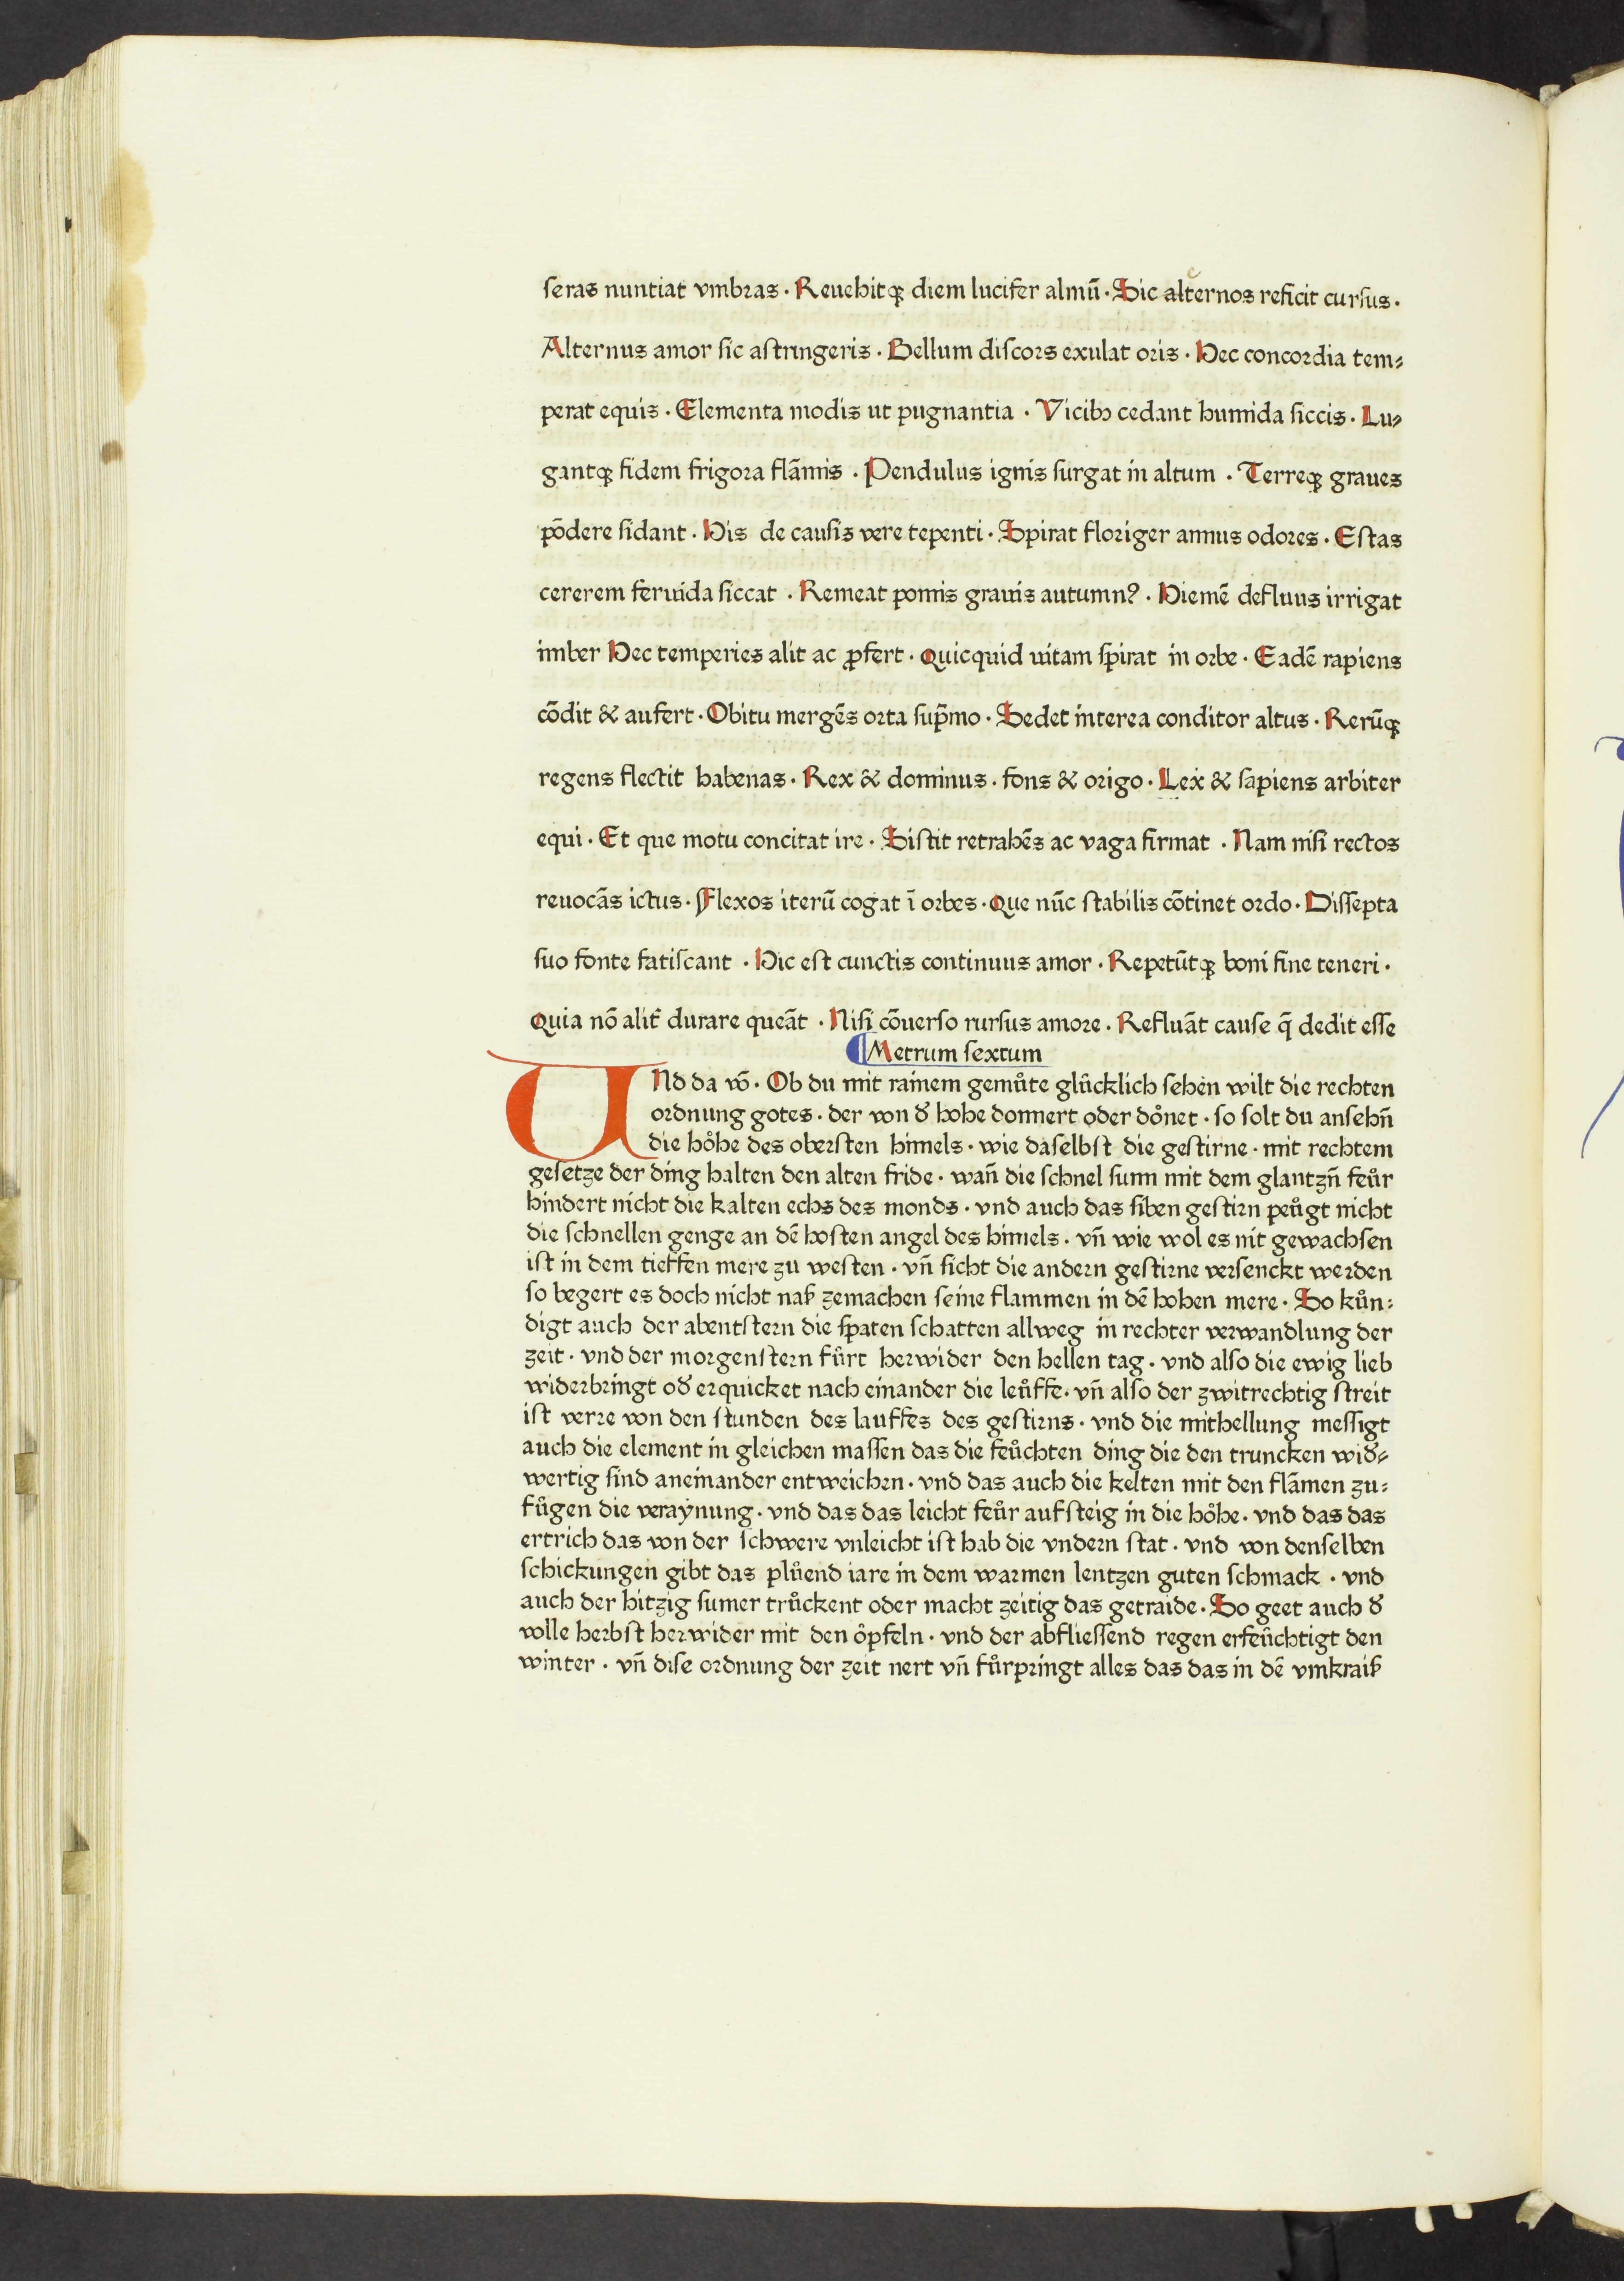 ſeras nuntiat vmbras · Reuehitqꝫ diem lucifer almū · Sic alternos reficit curſus ·
Alternus amor ſic aſtringeris · Bellum diſcors exulat oris · Hec concordia tem⸗
perat equis · Elementa modis ut pugnantia · Vicibꝫ cedant humida ſiccis · Lu⸗
gantqꝫ fidem frigora flāmis · Pendulus ignis ſurgat in altum · Terreqꝫ graues
pōdere ſidant · His de cauſis vere tepenti · Spirat floriger annus odores · Eſtas
cererem feruida ſiccat · Remeat pomis grauis autumnꝰ · Hiemē defluus irrigat
imber Hec temperies alit ac ꝓfert · Quicquid uitam ſpirat in orbe · Eadē rapiens
cōdit & aufert · Obitu mergēs orta ſup̄mo · Sedet interea conditor altus · Rerūqꝫ
regens flectit habenas · Rex & dominus · fons & origo · Lex & ſapiens arbiter
equi · Et que motu concitat ire · Siſtit retrahēs ac vaga firmat · Nam niſi rectos
reuocās ictus · Flexos iterū cogat ī orbes · Que nūc ſtabilis cōtinet ordo · Diſſepta
ſuo fonte fatiſcant · Hic eſt cunctis continuus amor · Repetūtqꝫ boni fine teneri ·
Quia nō alit̄ durare queāt · Niſi cōuerſo rurſus amore · Refluāt cauſe q̄ dedit eſſe
Metrum ſextum
UNd da vō · Ob du mit rainem gemuͦte gluͦcklich ſehen wilt die rechten
ordnung gotes · der von đ hohe donnert oder doͤnet · ſo ſolt du anſehn̄
die hoͤhe des oberſten himels · wie daſelbſt die geſtirne · mit rechtem
geſetze der ding halten den alten fride · wan̄ die ſchnel ſunn mit dem glantzn̄ feuͦr
hindert nicht die kalten echs des monds · vnd auch das ſiben geſtirn peuͦgt nicht
die ſchnellen genge an dē hoſten angel des himels · vn̄ wie wol es nit gewachſen
iſt in dem tieffen mere zu weſten · vn̄ ſicht die andern geſtirne verſenckt werden
ſo begert es doch nicht naß zemachen ſeine flammen in dē hohen mere · So kuͦn⸗
digt auch der abentſtern die ſpaten ſchatten allweg in rechter verwandlung der
zeit · vnd der morgenſtern fuͦrt herwider den hellen tag · vnd alſo die ewig lieb
widerbringt ođ erquicket nach einander die leuͦffe · vn̄ alſo der zwitrechtig ſtreit
iſt verre von den ſtunden des lauffes des geſtirns · vnd die mithellung meſſigt
auch die element in gleichen maſſen das die feuͦchten ding die den truncken wiđ⸗
wertig ſind aneinander entweichen · vnd das auch die kelten mit den flāmen zu⸗
fuͦgen die veraẏnung · vnd das das leicht feuͦr aufſteig in die hoͤhe · vnd das das
ertrich das von der ſchwere vnleicht iſt hab die vndern ſtat · vnd von denſelben
ſchickungen gibt das pluͦend iare in dem warmen lentzen guten ſchmack · vnd
auch der hitzig ſumer truͦckent oder macht zeitig das getraide · So geet auch đ
volle herbſt herwider mit den oͤpfeln · vnd der abflieſſend regen erfeuͦchtigt den
winter · vn̄ diſe ordnung der zeit nert vn̄ fuͦrpringt alles das das in dē vmkraiß